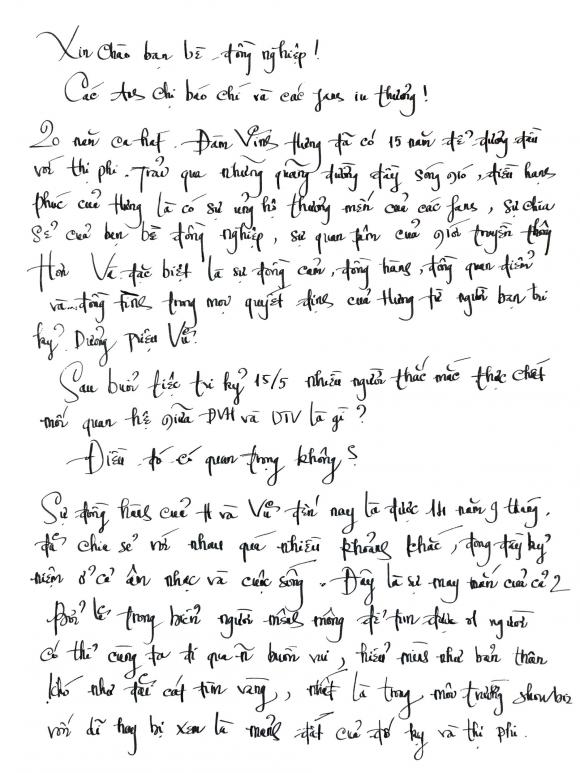 Xin chào bạn bè đồng nghiệp!
Các Anh chị báo chí và các fans iu thương!
20 năm ca hát. Đàm Vĩnh Hưng đã có 15 năm để đương đầu
với thị phi. Trải qua những quãng đường đầy sóng gió, điều hạnh
phúc của Hưng là có sự ủng hộ thương mến của các fans, sự chia
sẻ của bạn bè đồng nghiệp, sự quan tâm của giới truyền thông
Hơn Và đặc biệt là sự đồng cảm, đồng hành, đồng quan điểm
và... đồng tình trong mọi quyết định của Hưng từ người bạn tri
kỷ? Dương Triệu Vũ.
Sau buổi tiệc tri kỷ 15/5 nhiều người thắc mắc thực chất
mối quan hệ giữa ĐVH và DTV là gì?
Điều đó có quan trọng không?
Sự đồng hành của H và Vũ đến nay là được 14 năm 9 tháng.
đã chia sẻ với nhau quá nhiều khoảng khắc, đong đầy kỷ
niệm ở cả âm nhạc và cuộc sống. Đây là sự may mắn của cả 2
Bởi lẽ trong biển người mênh mông để tìm được 01 người
có thể cùng ta đi qua ~ buồn vui, hiểu mình như bản thân
khó như đãi cát tìm vàng,, nhất là trong môi trường showbiz
vốn dĩ hay bị xem là mảnh đất của đố kỵ và thị phi.